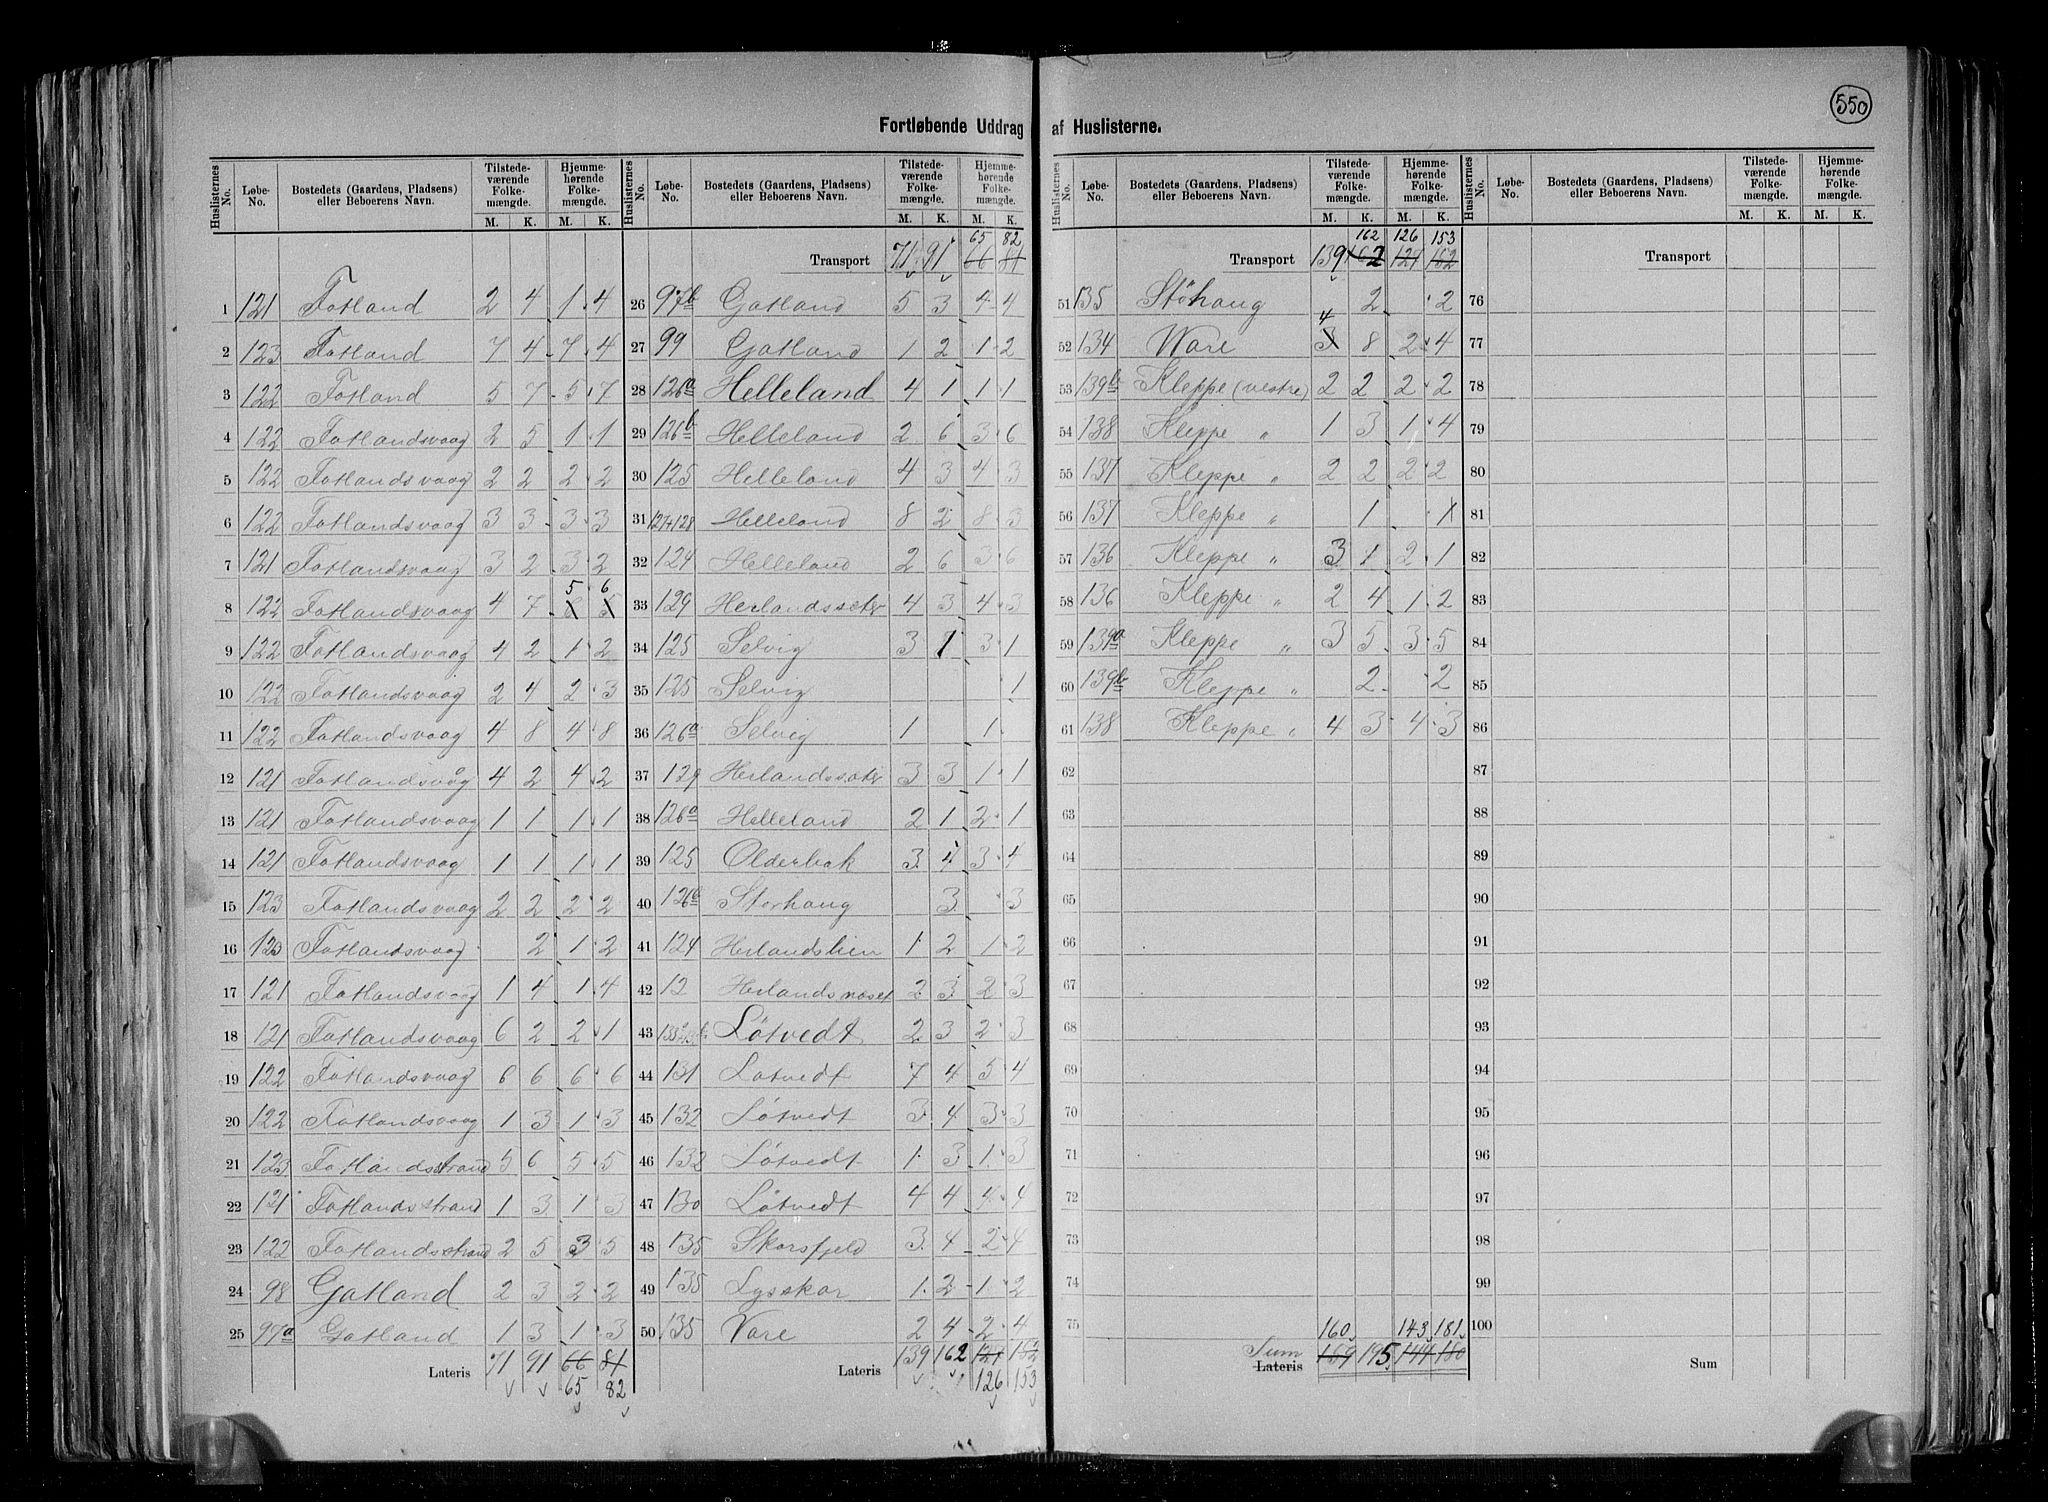 550
Fortløbende Uddrag af Huslisterne.
Huslisternes No. Løbe-No. Bostedets (Gaardens, Pladsens) eller Beboerens Navn. Tilstedeværende Folkemængde. M. K. Hjemmehørende Folkemængde. M. K.
1 121 Fotland 2 4 1 4
2 123 Fotland 7 4 7 4
3 122 Fotland 5 7 5 7
4 122 Fotlandsvaag 2 5 1 1
5 122 Fotlandsvaag 2 2 2 2
6 122 Fotlandsvaag 3 3 3 3
7 121 Fotlandsvaag 3 2 3 2
8 122 Fotlandsvaag 4 7 5 6
9 122 Fotlandsvaag 4 2 1 2
10 122 Fotlandsvaag 2 4 2 3
11 122 Fotlandsvaag 4 8 4 8
12 121 Fotlandsvaag 4 2 4 2
13 121 Fotlandsvaag 1 1 1 1
14 121 Fotlandsvaag 1 1 1 1
15 123 Fotlandsvaag 2 2 2 2
16 123 Fotlandsvaag 2 1 2
17 121 Fotlandsvaag 1 4 1 4
18 121 Fotlandsvaag 6 2 2 1
19 122 Fotlandsvaag 6 6 6 6
20 122 Fotlandsvaag 1 3 1 3
21 123 Fotlandsstrand 5 6 5 5
22 121 Fotlandsstrand 1 3 1 3
23 122 Fotlandsstrand 2 5 3 5
24 98 Gatland 2 3 2 2
25 97a Gatland 1 3 1 3
Lateris 71 91 66 81
65 82
Huslisternes No. Løbe-No. Bostedets (Gaardens, Pladsens) eller Beboerens Navn. Tilstedeværende Folkemængde. M. K. Hjemmehørende Folkemængde. M. K.
65 82
Transport 71 91 66 81
26 97b Gatland 5 3 4 4
27 99 Gatland 1 2 1 2
28 126a Helleland 4 1 1 1
29 126b Helleland 2 6 3 6
30 125 Helleland 4 3 4 3
31 127+128 Helleland 8 2 8 3
32 124 Helleland 2 6 3 6
33 129 Herlandssæter 4 3 4 3
34 125 Selvig 3 1 3 1
35 125 Selvig 1
36 126a Selvig 1 1
37 129 Herlandssæter 3 3 1 1
38 126a Helleland 2 1 2 1
39 125 Olderbak 3 4 3 4
40 126b Storhaug 3 3
41 124 Herlandslien 1 2 1 2
42 12 Herlandsnæset 2 3 2 3
43 Løtvedt 2 3 2 3
44 131 Løtvedt 7 4 5 4
45 132 Løtvedt 3 4 3 3
46 132 Løtvedt 1 3 1 3
47 130 Løtvedt 4 4 4 4
48 135 Skorsfjeld 3 4 2 4
49 135 Lysskar 1 2 1 2
50 135 Vare 2 4 2 4
Lateris 139 162 127 152
126 153
Huslisternes No. Løbe-No. Bostedets (Gaardens, Pladsens) eller Beboerens Navn. Tilstedeværende Folkemængde. M. K. Hjemmehørende Folkemængde. M. K.
162 126 153
Transport 139 162 127 152
51 135 Støhaug 2 2
4
52 134 Vare 3 8 2 4
53 139b Kleppe (vestre) 2 2 2 2
54 138 Kleppe " 1 3 1 4
55 137 Kleppe " 2 2 2 2
56 137 Kleppe " 1 1
57 136 Kleppe " 3 1 2 1
58 136 Kleppe " 2 4 1 2
59 139a Kleppe " 3 5 3 5
60 139b Kleppe " 2 2
61 138 Kleppe " 4 3 4 3
62
63
64
65
66
67
68
69
70
71
72
73
74
75
160 143 181
Sum
Lateris 159 195 144 180
Huslisternes No. Løbe-No. Bostedets (Gaardens, Pladsens) eller Beboerens Navn. Tilstedeværende Folkemængde. M. K. Hjemmehørende Folkemængde. M. K.
Transport
76
77
78
79
80
81
82
83
84
85
86
87
88
89
90
91
92
93
94
95
96
97
98
99
100
Sum